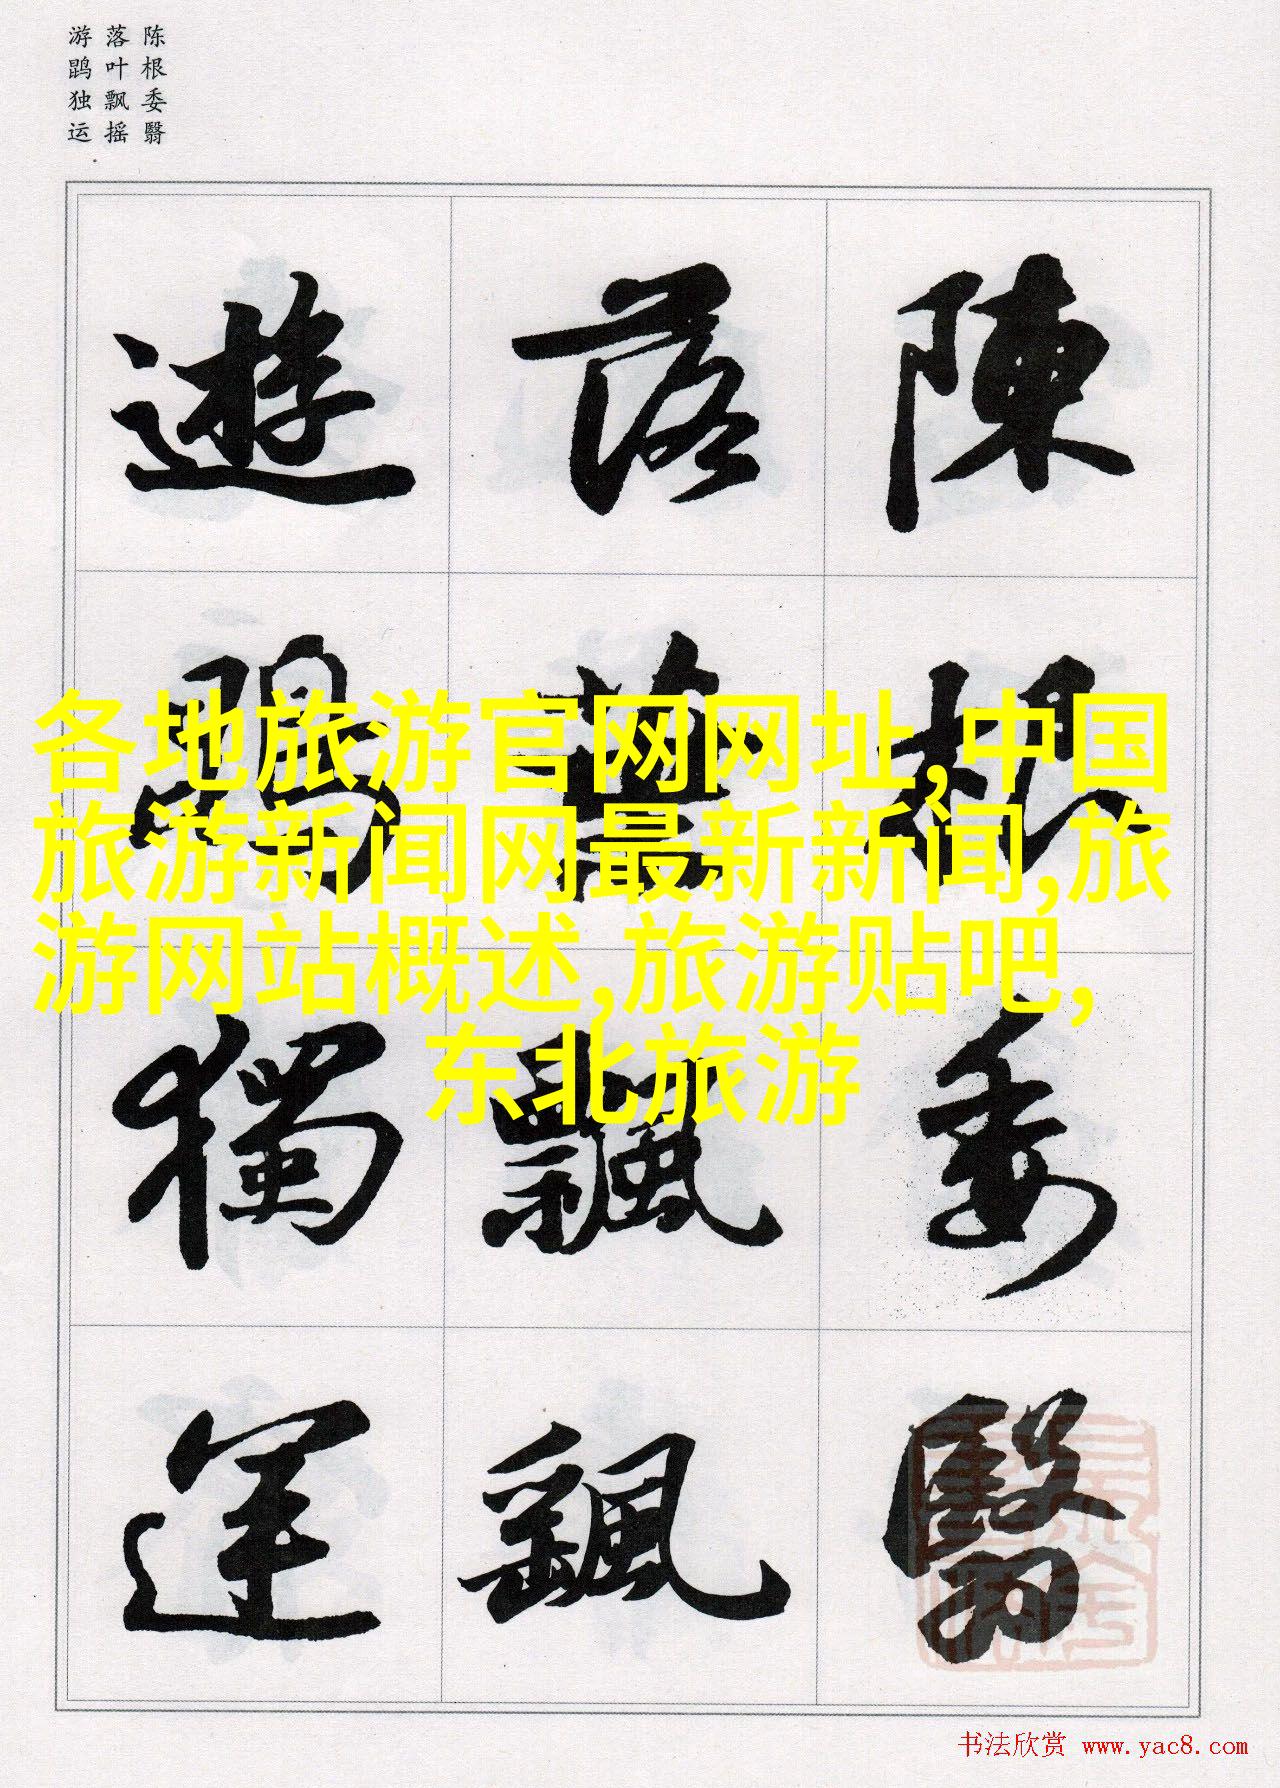 陈根委翳
落叶飘摇
游鹍独运
陳根委翳
落葉飄颻
遊鵾獨運
各地旅游官网网址,中国
旅游新闻网最新新闻,旅
游网站概述,旅游贴吧,
东北旅游
书法欣赏 www.yac8.com